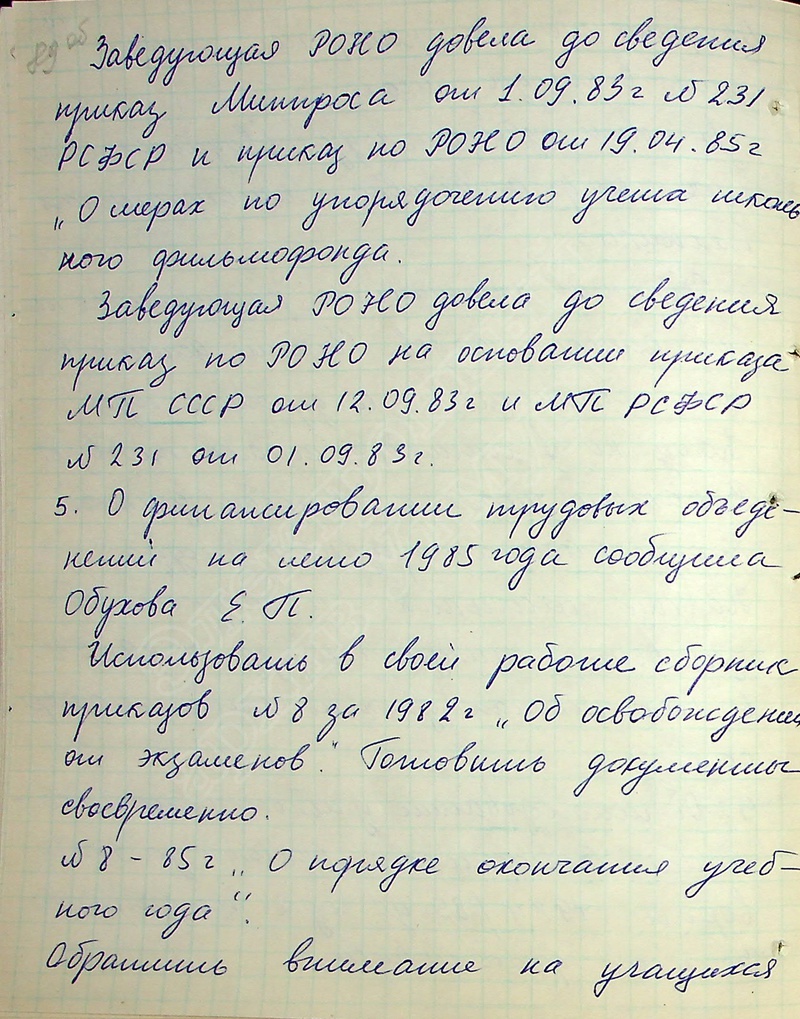 89 об
Заведующая РОНО довела до сведения
приказ Минпроса от 1.09.83г № 231
РСФСР и приказ по РОНО от 19.04.85г
„О мерах по упорядочению учета школь
ного фильмофонда.
Заведующая РОНО довела до сведения
приказ по РОНО на основании приказа
МП СССР от 12.09.83г и МП РСФСР
№ 231 от 01.09.83г.
5. О финансировании трудовых объеди-
нений на лето 1985 года сообщила
Обухова Е.П.
Использовать в своей работе сборник
приказов № 8 за 1982г „Об освобождении
от экзаменов". Готовить документы
своевременно.
№ 8 - 85г „О порядке окончания учеб-
ного года".
Обратить внимание на учащихся